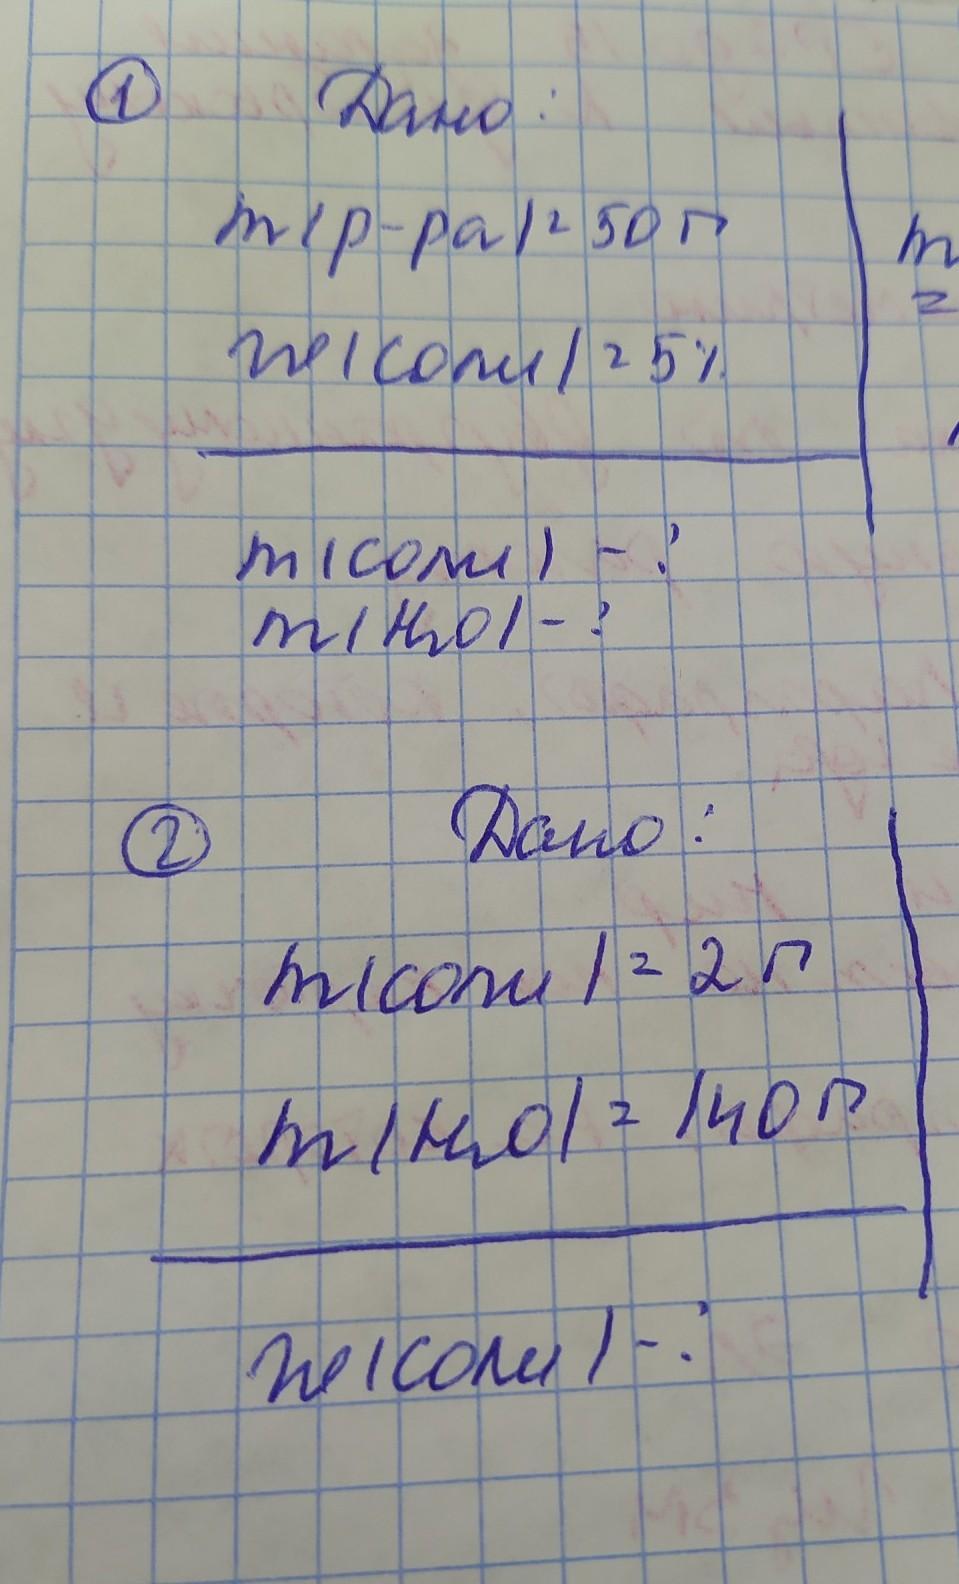 ① Дано:
m(р-ра) = 50 г
m
=
w(соли) = 5%
m(соли) - ?
m(H₂O) - ?
② Дано:
m(соли) = 2 г
m(H₂O) = 140 г
w(соли) - ?